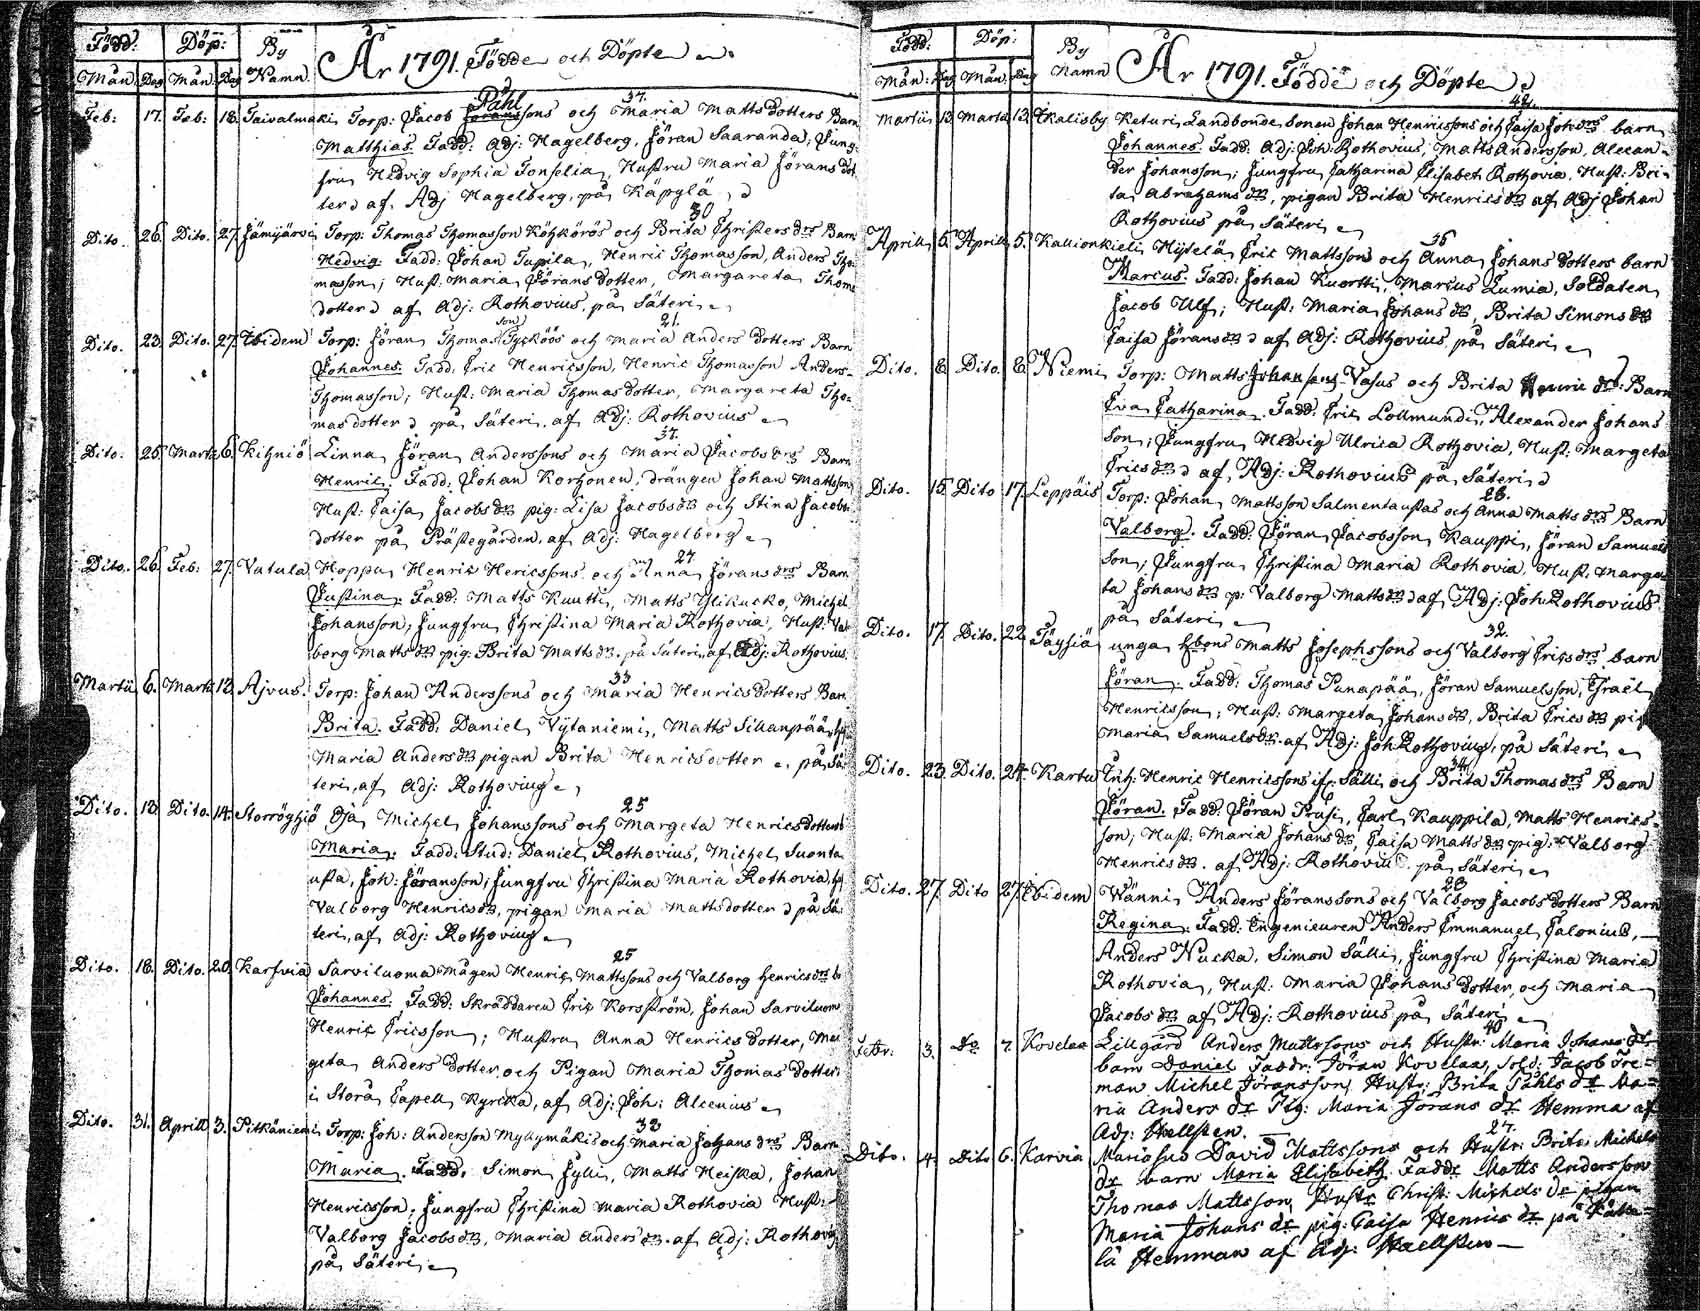 Född: Döp: By
Mån Dag Mån. Dag Namn. År 1791. Födde och Döpte
Feb: 17. Feb: 18. Taivalmaki Torp: Jacob Påhlssons och Maria Matts Dotters Barn 37.
Matthias. Fadd: Adj: Hagelberg, Jöran Saaranda, Jung-
fru Hedvig Sophia Fonselia, Hustru Maria Jörans Dot
ter af Adj Hagelberg, på Käpylä
Dito. 26. Dito. 27. Jämijärvi Torp: Thomas Thomasson Köykörös och Brita Christers drs Barn 30
Hedvig: Fadd: Johan Tupila, Henric Thomasson, Anders Tho-
masson; Hust: Maria Jörans Dotter, Margareta Thoms
dotter af Adj: Rothovius, på Säteri
Dito. 23. Dito. 27. Ibidem Torp: Jöran Thomasson Tysköös och Maria Anders Dotters Barn 21.
Johannes. Fadd. Eric Henricsson, Henric Thomasson Anders-
Thomasson; Hust: Maria Thomas dotter, Margareta Tho-
mas dotter på Säteri. af Adj: Rothovius
Dito. 25. Martii 6. Kihniö Linna Jöran Anderssons och Maria Jacobs drs Barn 37.
Henric. Fadd. Johan Korhonen, drängen Johan Mattsson
Hust: Caisa Jacobs dr pig: Lisa Jacobs dr och Stina Jacobs
dotter på Prästegården. af Adj: Hagelberg
Dito. 26. Feb: 27. Vatula Hoppu Henric Hericssons och Anna Jörans drs Barn 27.
Justina. Fadd: Matts Kuutti, Matts Ylikucko, Michel
Johansson; Jungfru Christina Maria Rothovia, Hust: Val
borg Matts dr pig: Brita Matts dr. på Säteri, af Adj: Rothovius.
Martii 6. Martii 13. Ajvus. Torp: Johan Anderssons och Maria Henrics dotters Barn 33
Brita. Fadd: Daniel Vijtaniemi, Matts Sillanpää,
Maria Anders dr pigan Brita Henrics dotter på Sä
teri, af Adj: Rothovius
Dito. 13. Dito. 14. Oja Michel Johanssons och Margeta Henrics dotters 25
Maria. Fadd: Stud: Daniel Rothovius, Michel Suonta
usta, Joh: Jöransson; Jungfru Christina Maria Rothovia,
Valborg Henrics dr, pigan Maria Matts dotter på Sä
teri, af Adj: Rothovius
Dito. 18. Dito. 20. Karfvia Sarviluoma mågen Henric Mattssons och Valborg Henrics drs b 25
Johannes. Fadd: Skräddaren Eric Korsström, Johan Sarviluom
Henric Ericsson; Hustru Anna Henrics dotter, Mar
geta Anders Dotter och Pigan Maria Thomas dotter
i Storå Capell Kyrcka, af Adj: Joh: Alcenius
Dito. 31. Aprill 3. Pitkäniemi Torp: Joh: Andersson Myllymäkis och Maria Johans drs Barn 32
Maria. Fadd. Simon Jylli, Matts Heiska, Johan
Henricsson; Jungfru Christina Maria Rothovia Hust:
Valborg Jacobs dr, Maria Anders dr. af Adj: Rothovi
på Säteri
Född: Döp: By
Mån: Dag Mån. Dag Namn År 1791. Födde och Döpte
Martii 13 Martii 13. Skalisby Keturi Landbonde sonen Johan Henricssons och Caisa Joh drs barn 42.
Johannes. Fadd: Adj: Joh: Rothovius, Matts Andersson, Alexan-
der Johansson; Jungfru Catharina Elisabet Rothovia, Hust: Bri-
ta Abrahams dr, pigan Brita Henrics dr af Adj Johan
Rothovius på Säteri
Aprill 5. Aprill 5. Kallionkieli Hÿtelä Eric Mattsson och Anna Johans Dotters barn 36
Marcus. Fadd: Johan Kuortti, Marcus Lumia, Soldaten
Jacob Ulf; Hust: Maria Johans dr, Brita Simons dr
Caisa Jörans dr af Adj: Rothovius, på Säteri
Dito. 8. Dito. 8. Niemi Torp: Matts Johanssons Vasus och Brita Henric drs: Barn
Eva Catharina. Fadd: Eric Lollmundi, Alexander Johans
son; Jungfru Hedvig Ulrica Rothovia, Hust: Margeta
Erics dr af, Adj: Rothovius på Säteri
Dito. 15. Dito 17. Leppäis Torp: Johan Mattsson Salmentaustas och Anna Matts drs Barn 28.
Valborg. Fadd: Jöran Jacobsson Kauppi, Jöran Samuels
son; Jungfru Christina Maria Rothovia, Hust. Marga-
ta Johans dr p: Valborg Matts dr af Adj: Joh: Rothovius
på Säteri
Dito. 17. Dito. 22. Täysiä unga Matts Josephssons och Valborg Erics drs barn 32.
Jöran. Fadd: Thomas Punapää, Jöran Samuelsson, Israël
Henricsson; Hust: Margeta Johans dr, Brita Erics dr pig
Maria Samuels dr. af Adj: Joh Rothovius, på Säteri
Dito. 23. Dito. 24. Kartu Henric Henricssons Sälli och Brita Thomas drs Barn 34
Jöran. Fadd: Jöran Prusi, Carl Kauppila, Matts Henrics-
son; Hust: Maria Johans dr, Caisa Matts dr pig: Valborg
Henrics dr. af Adj: Rothovius på Säteri
Dito. 27. Dito 27. Ibidem Wänni Anders Jöranssons och Valborg Jacobs dotters Barn 23
Regina. Fadd: Ingenieuren Anders Emmanuel Calonius,
Anders Nucka, Simon Sälli, Jungfru Christina Maria
Rothovia, Hust: Maria Johans Dotter, och Maria
Jacobs dr af Adj: Rothovius på Säteri
Febr: 3. Do 7. Kovelax Lillgård Anders Mattssons och Hustr: Maria Johans dr 40
barn Daniel Faddr: Jöran Kovelax, Sold: Jacob Fri-
man Michel Jöransson, Hustr: Brita Påhls dr Ma-
ria Anders dr Pig: Maria Jörans dr Hemma af
Adj: Hellsten.
Dito. 4. Dito 6. Karvia David Mattssons och Hustr: Brita Michels 27.
dr barn Maria Elisabeth Faddr Matts Andersson
Thomas Mattsson, Hustr Christ: Michels dr pigan
Maria Johans dr pig: Caisa Henrics dr på
lä Hemman af Adj: Haellsten